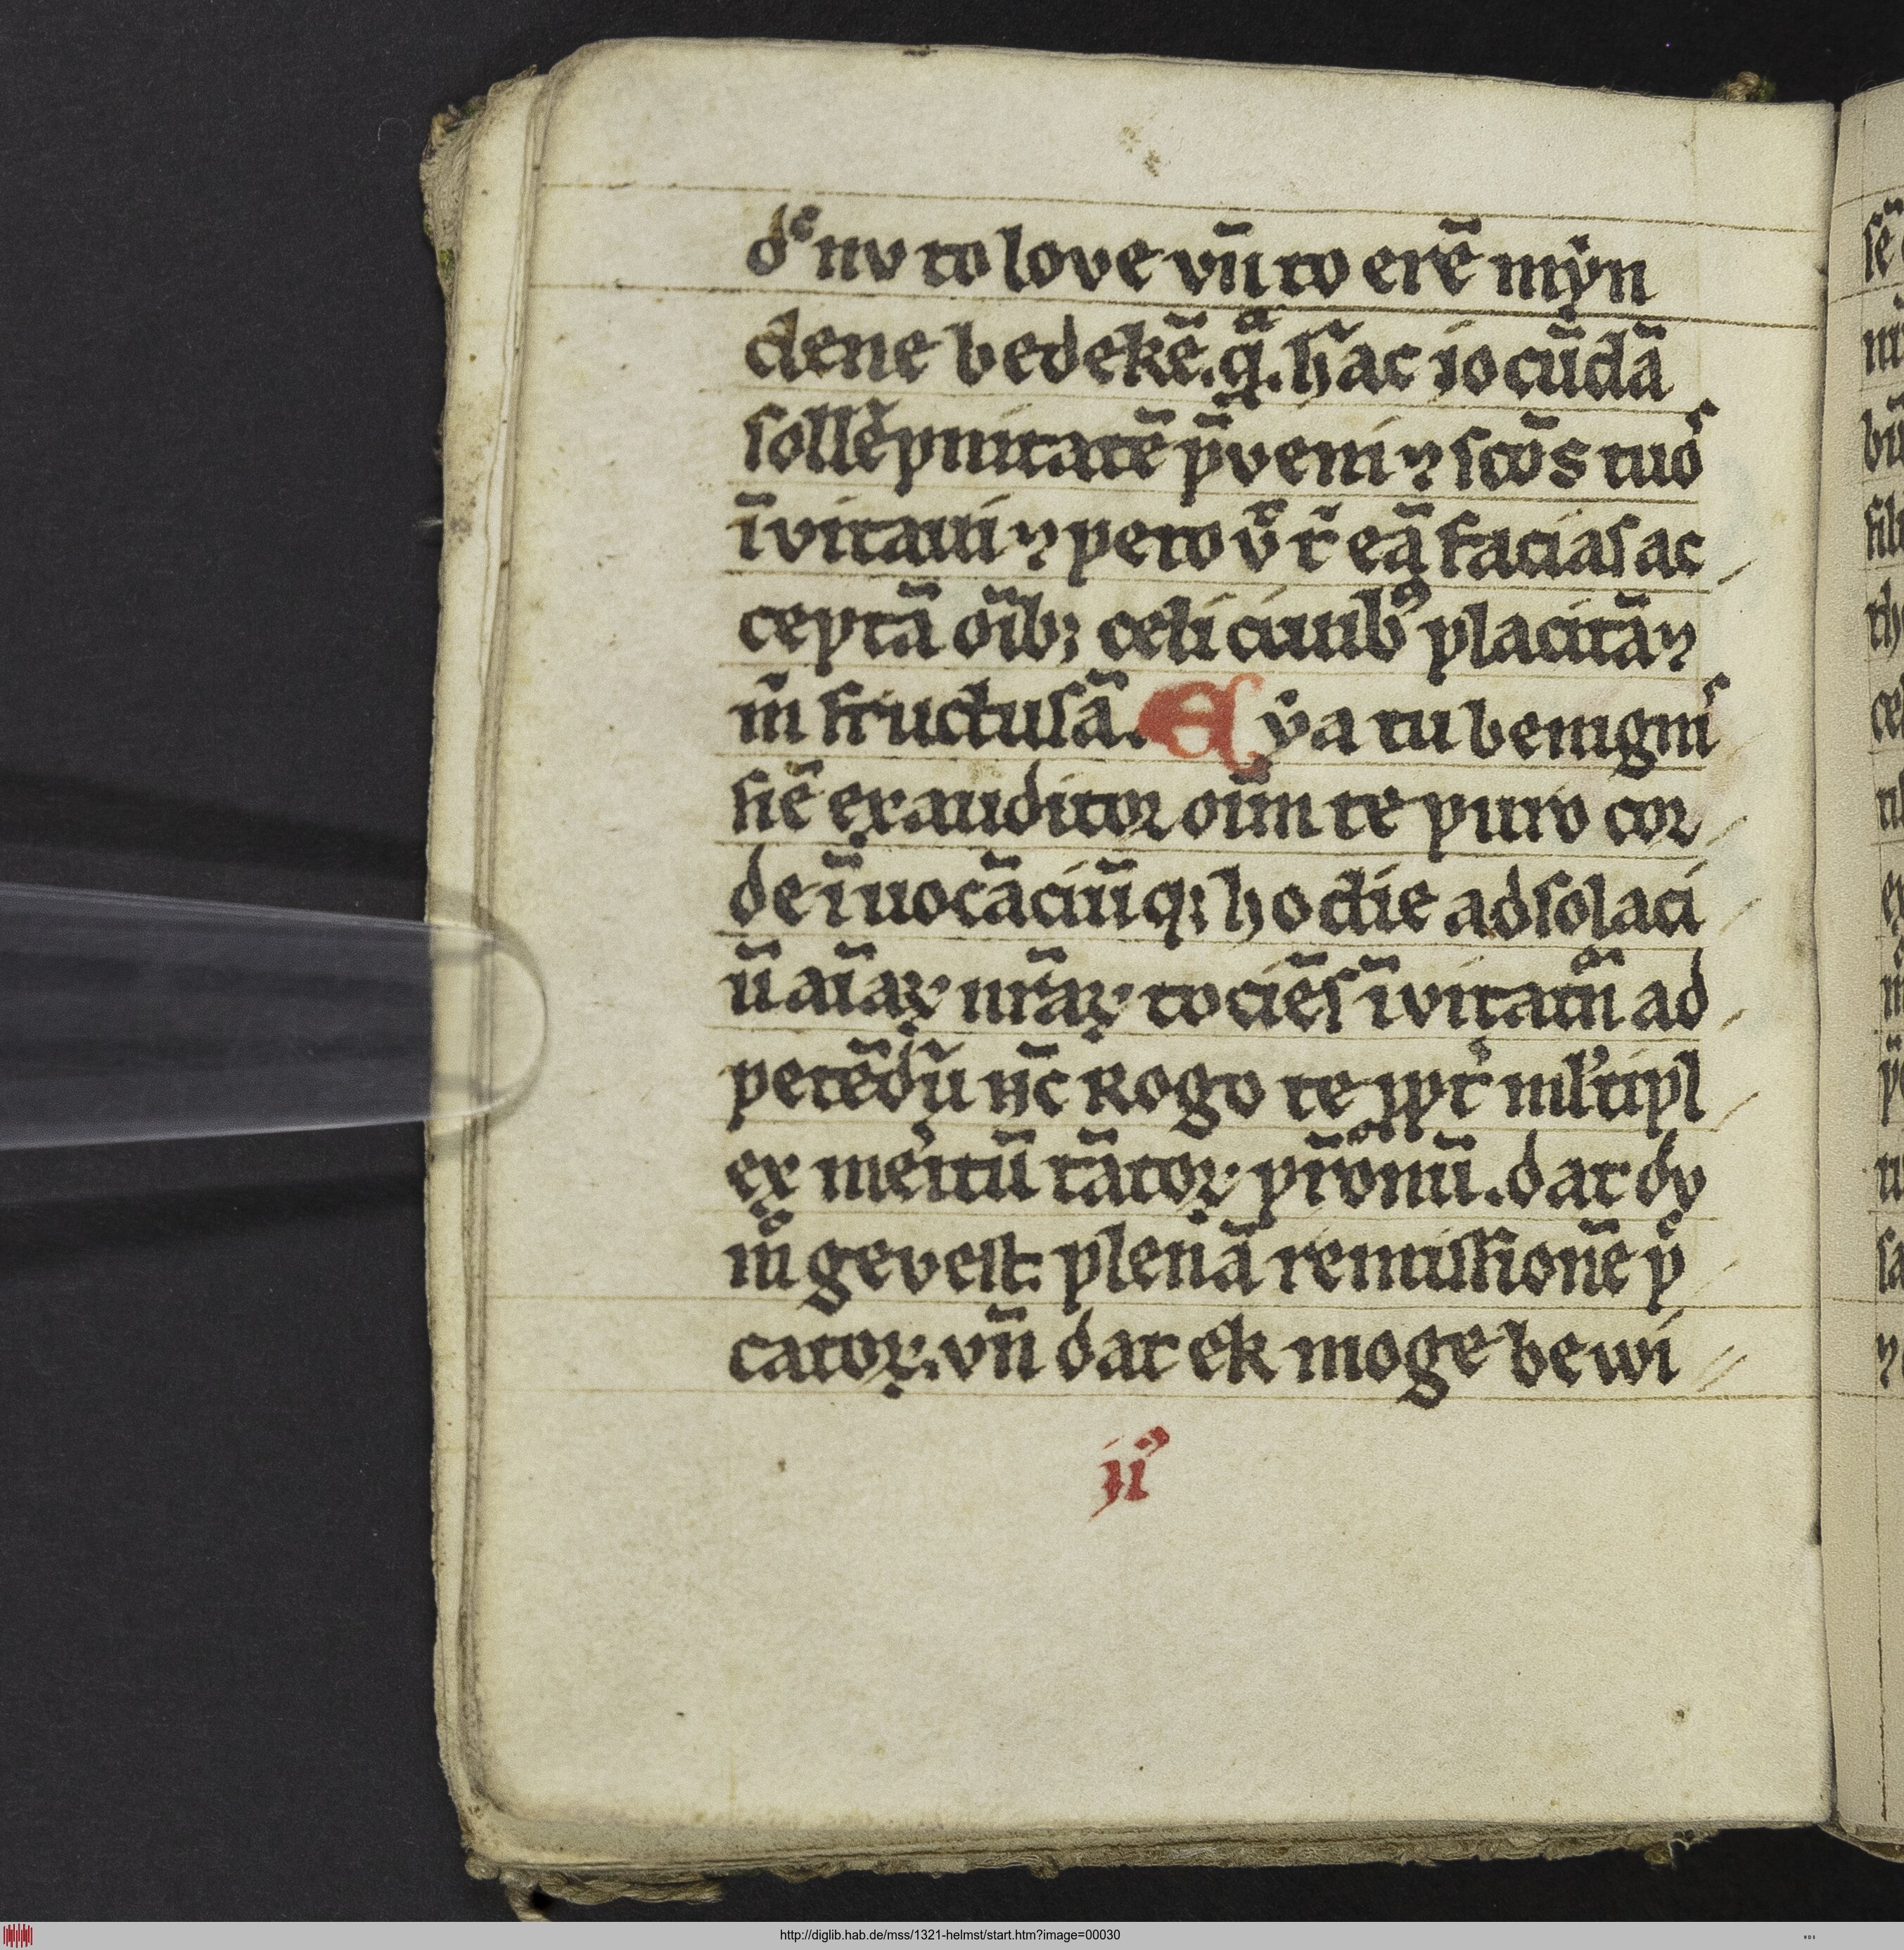 dͤ nv to love vn̄ to erē mẏn
dene bedekē. qͣ̄. h̄ ac iocūdā
sollēpnitatē p̄veni ⁊ sc̄os tuoˢ
īvitaui ⁊ peto v̄t eā facias ac
ceptā oīb; celi ciuibꝰ placitā ⁊
m̄ fructusā. Eẏa tu benigniˢ
siē exauditor oīm te puro cor
de īuocāciū q; hodie ad solaci
ū aīaꝝ nr̄aꝝ tociēs īvitatū ad
petēdū nc̄ Rogo te ꝓpt̓ ml̓tipl
ex meritū tātoꝝ pr̄onū. dat dv
m̄ gevest. plenā remissionē p̄
catoꝝ. vn̄ dat ek moge bewi
ijꝰ
http://diglib.hab.de/mss/1321-helmst/start.htm?image=00030